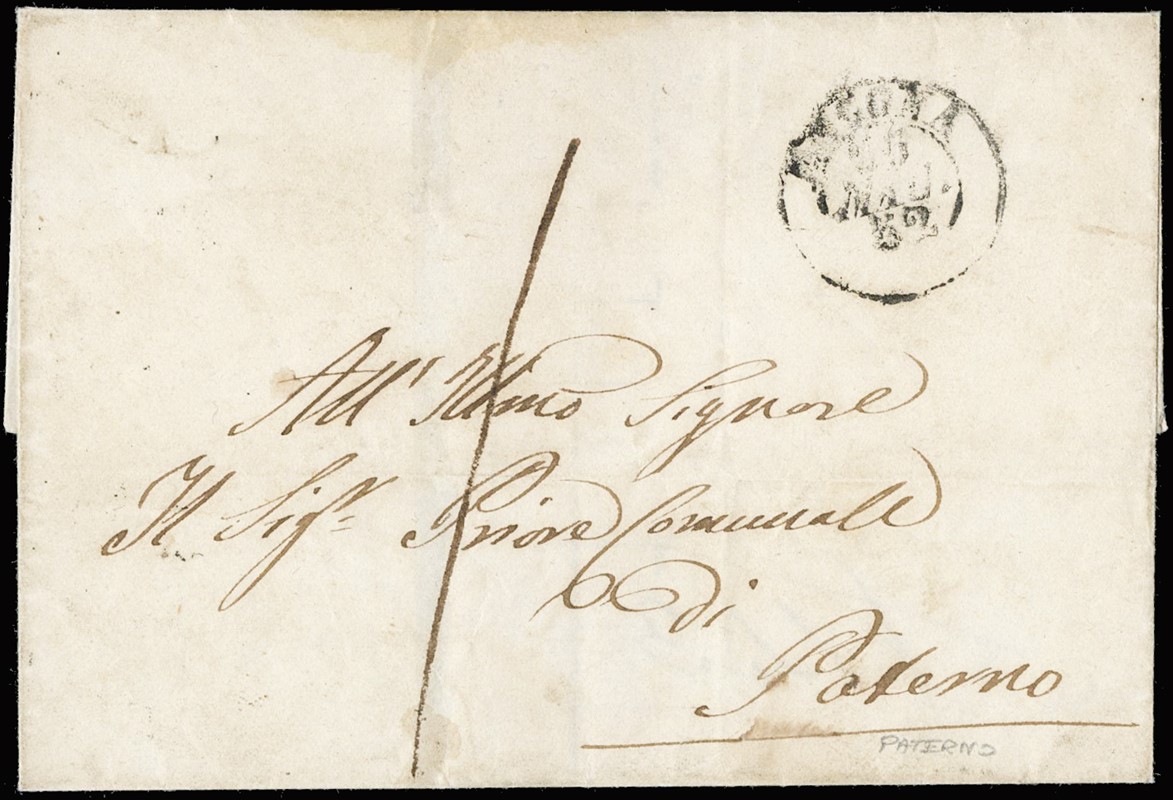 ANCONA
MAG.
52
All' Illmo Signore
Il Sigr. Priore Comunale
di
Paterno
PATERNO